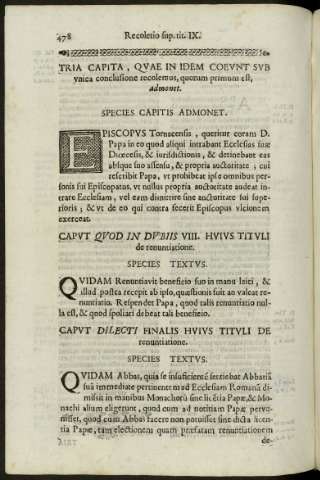 478 Recoletio sup. tit. IX.
TRIA CAPITA, QVAE IN IDEM COEVNT SVB
vnica conclusione recolemus, quorum primum est,
admonet.
SPECIES CAPITIS ADMONET.
EPISCOPVS Tornacensis, queritur coram D.
Papa in eo quod aliqui intrabant Ecclesias suæ
Diœcesis, & iurisdictionis, & detinebant eas
absque suo assensu, & propria auctoritate, cui
rescribit Papa, vt prohibeat ipse omnibus per-
sonis sui Episcopatus, vt nullus propria auctoritate audeat in-
trare Ecclesiam, vel eam dimittere sine auctoritate sui supe-
rioris; & vt de eo qui contra fecerit Episcopus vlcionem
exerceat.
CAPVT QVOD IN DVBIIS VIII. HVIVS TITVLI
de renuntiatione.
SPECIES TEXTVS.
QVIDAM Renuntiavit beneficio suo in manu laici, &
illud postea recepit ab ipso, quæstionis fuit an valeat re-
nuntiatio. Respondet Papa, quod talis renuntiatio nul-
la est, & quod spoliari debeat tali beneficio.
CAPVT DILECTI FINALIS HVIVS TITVLI DE
renuntiatione.
SPECIES TEXTVS.
QVIDAM Abbas, quia se insuficientẽ sentiebat Abbatiã
suã immediate pertinentem ad Ecclesiam Romanã di-
missit in manibus Monachorũ sine licẽtia Papæ, & Mo-
nachi alium eligerunt, quod cum ad notitiam Papæ perve-
nisset, quod cum Abbas facere non potuisset sine dicta licen-
tia Papæ, tam electionem quam præfatam renuntiationem
de-